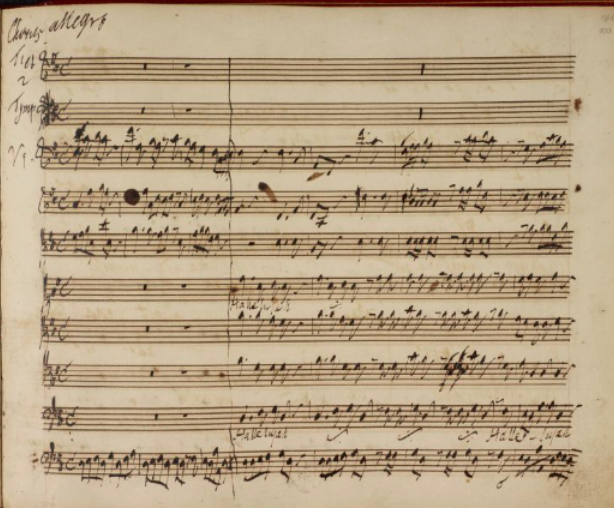 Chorus allegro
2
Tymp
V 1
Hallelujah
Hallelujah Hallelujah